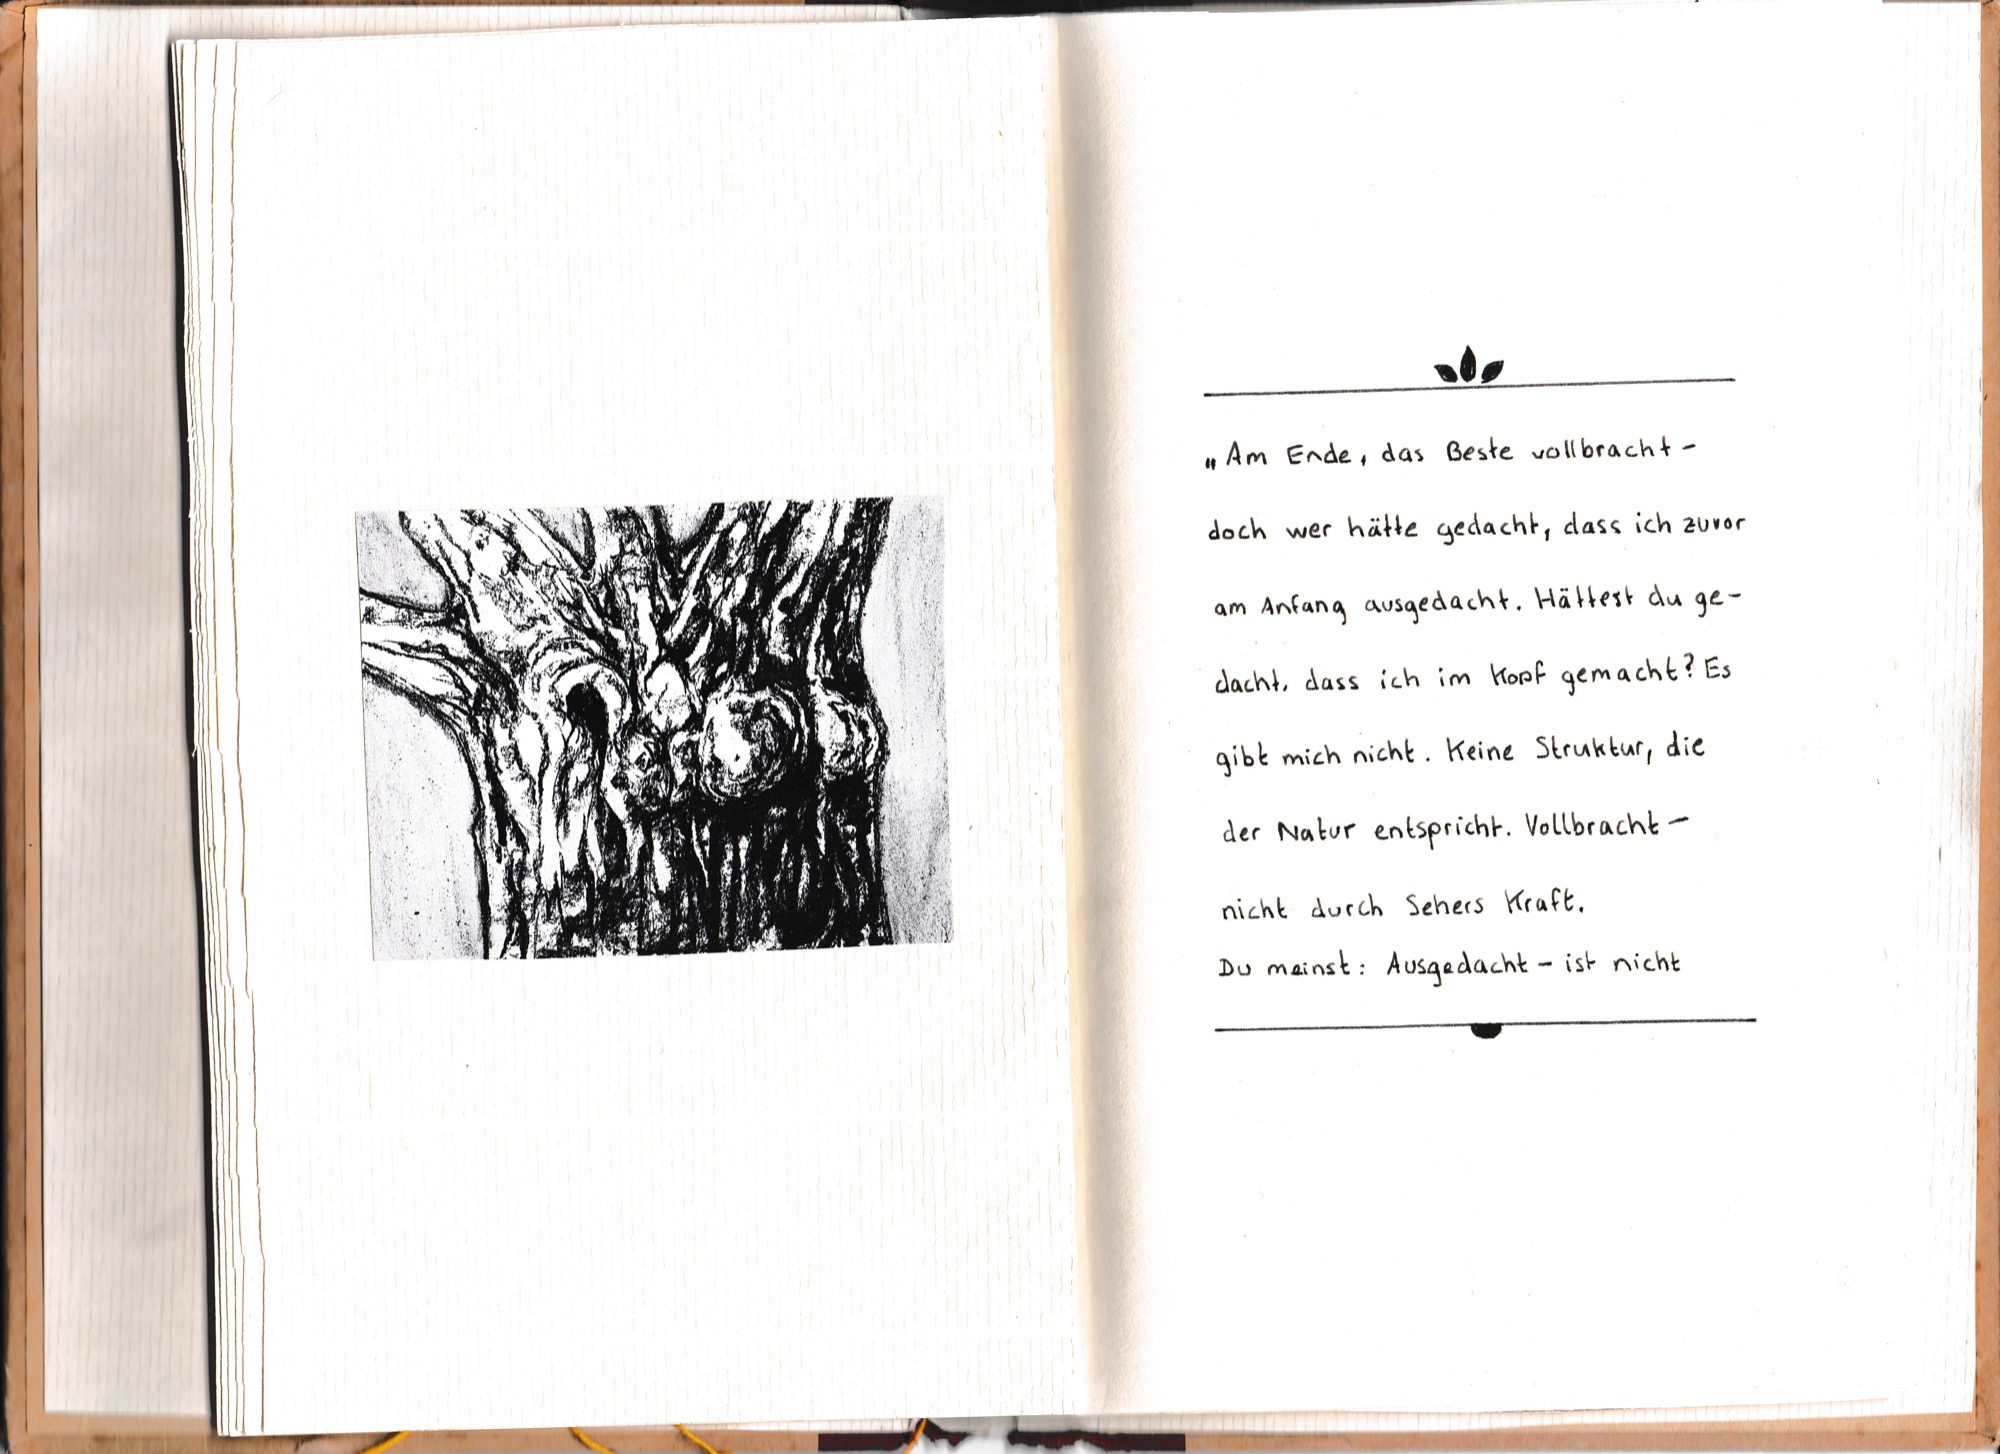 „Am Ende, das Beste vollbracht –
doch wer hätte gedacht, dass ich zuvor
am Anfang ausgedacht. Hättest du ge-
dacht, dass ich im Kopf gemacht? Es
gibt mich nicht. Keine Struktur, die
der Natur entspricht. Vollbracht –
nicht durch Sehers Kraft.
Du meinst: Ausgedacht – ist nicht